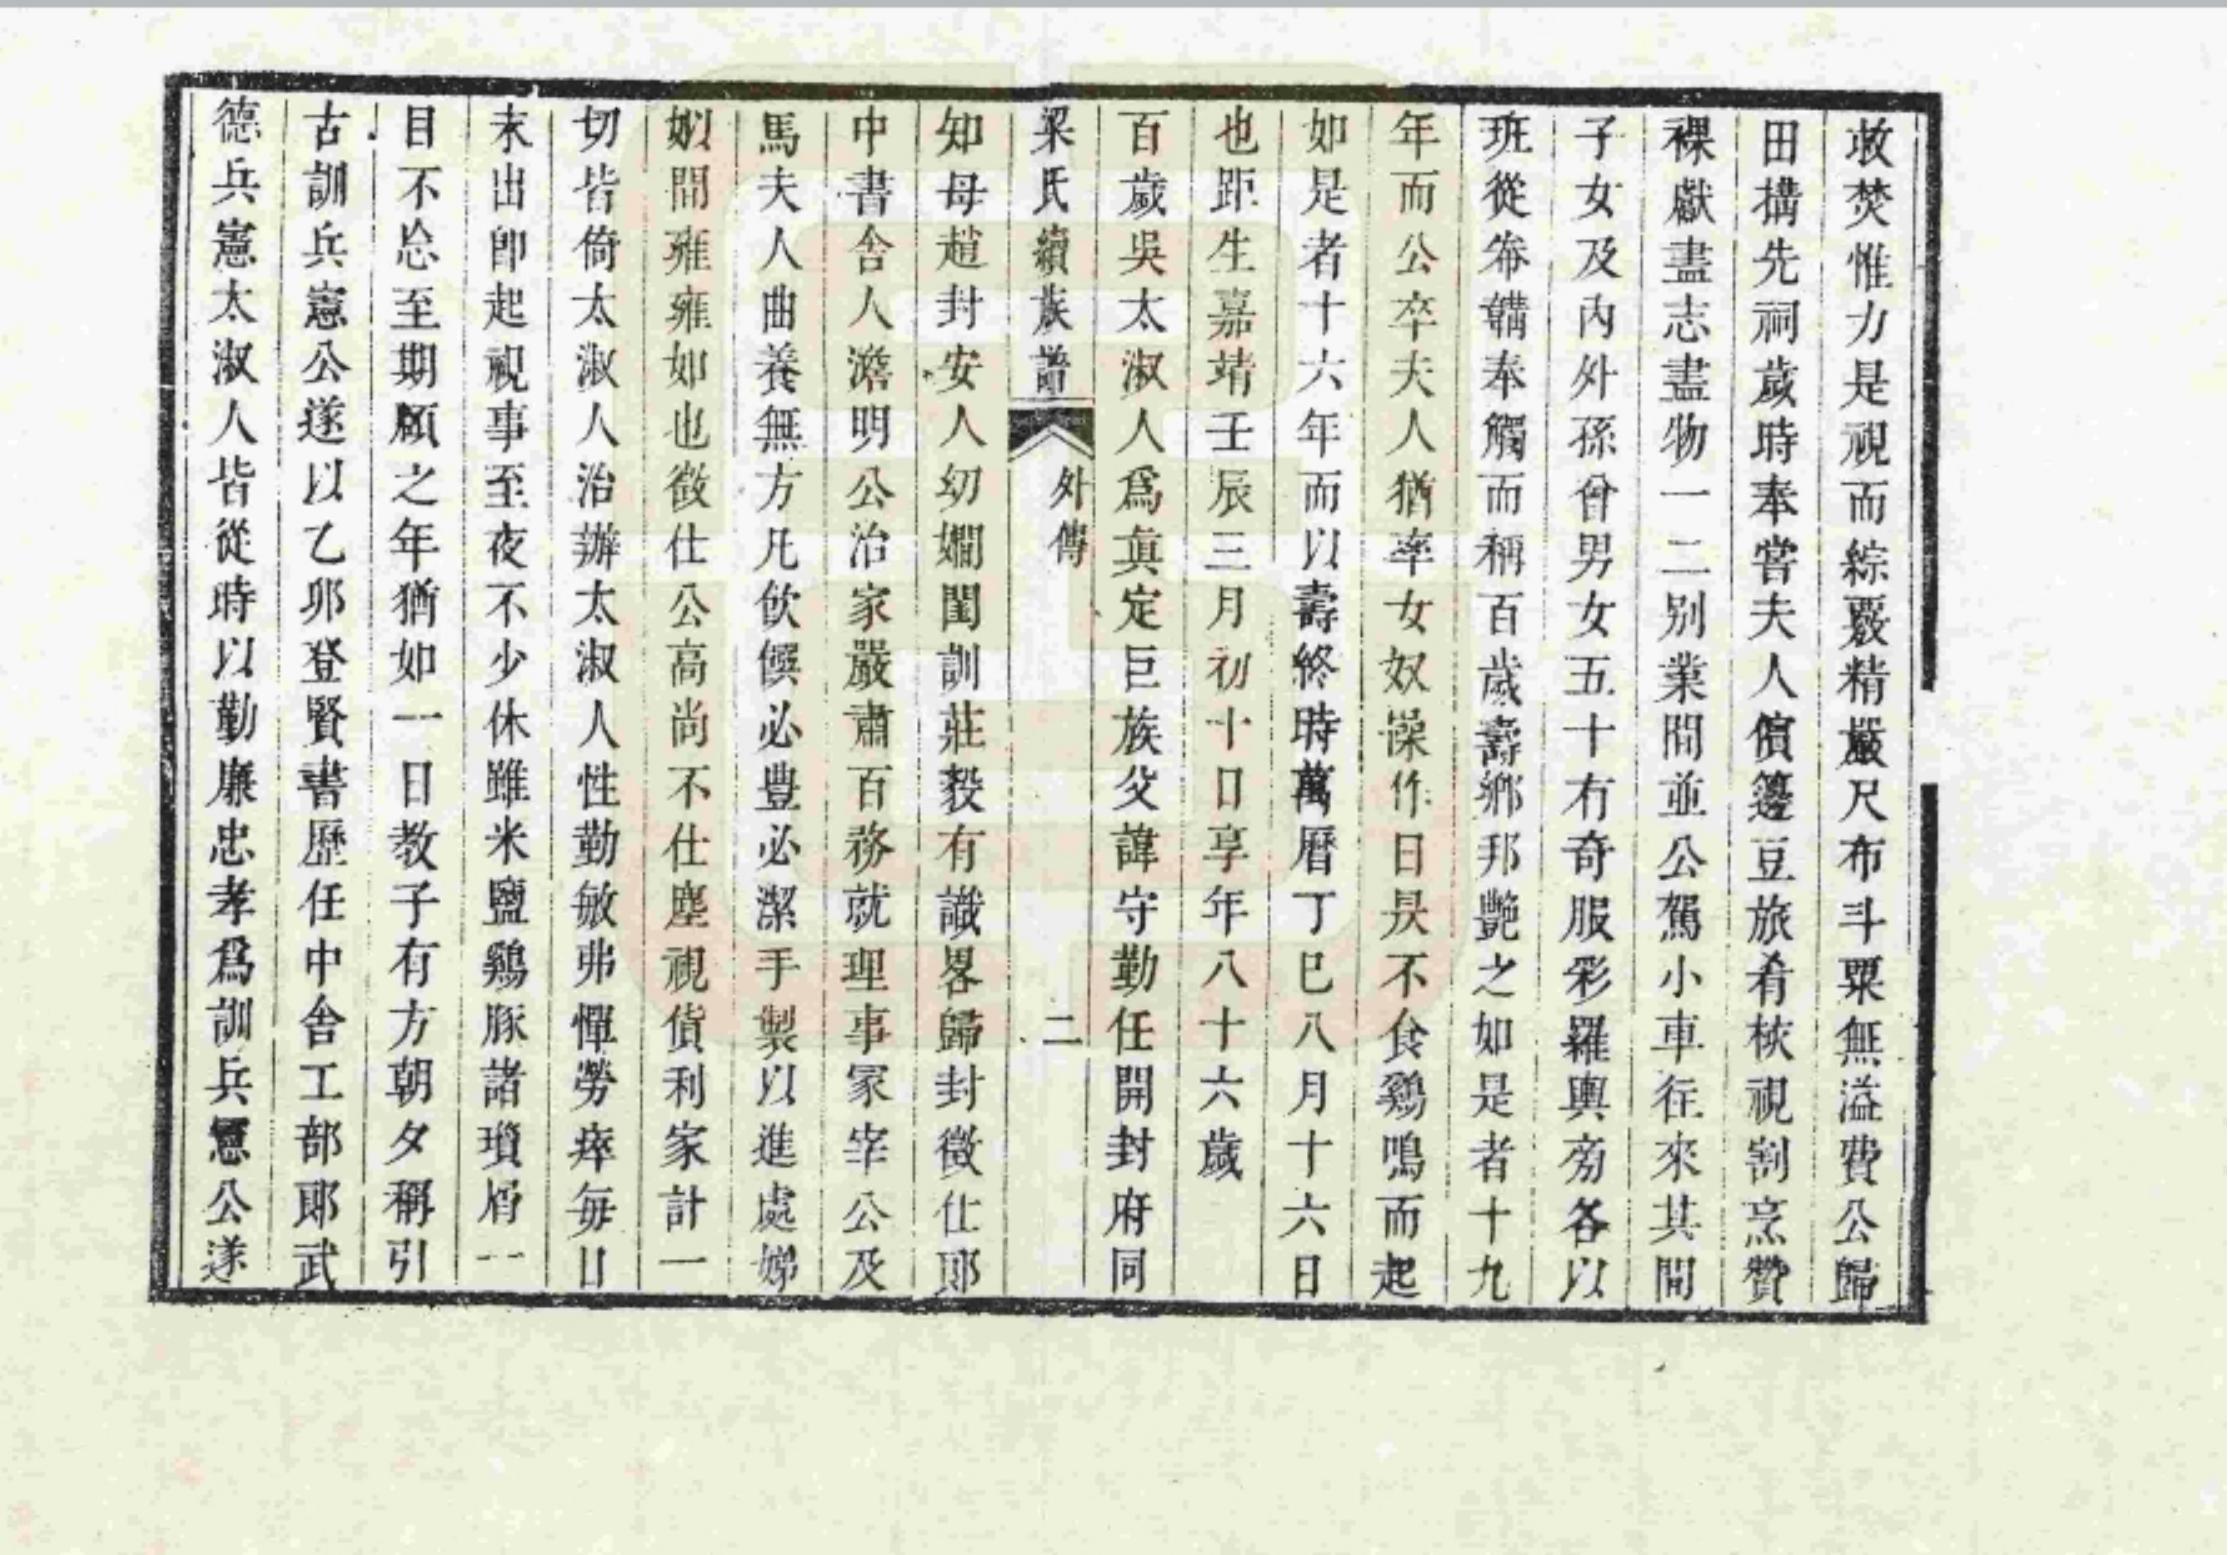 敢焚惟力是視而綜覈精嚴尺布斗粟無溢費公歸
田搆先祠歲時奉嘗夫人儐籩豆旅肴核視割烹贊
祼獻盡志盡物一二別業間並公駕小車往來其間
子女及內外孫曾男女五十有奇服彩羅輿旁各以
班從帣韝奉觴而稱百歲壽鄉邦艷之如是者十九
年而公卒夫人猶率女奴操作日昃不食鷄鳴而起
如是者十六年而以壽終時萬曆丁巳八月十六日
也距生嘉靖壬辰三月初十日享年八十六歲
百歲吳太淑人爲眞定巨族父諱守勤任開封府同
梁氏續族譜 外傳 二
知母趙封安人幼嫺閨訓莊毅有識畧歸封徵仕郎
中書舍人澹明公治家嚴肅百務就理事冢宰公及
馬夫人曲養無方凡飲饌必豐必潔手製以進處娣
姒間雍雍如也徵仕公高尚不仕塵視貨利家計一
切皆倚太淑人治辦太淑人性勤敏弗憚勞瘁每日
未出卽起視事至夜不少休雖米鹽鷄豚諸瑣屑一
目不忘至期頤之年猶如一日教子有方朝夕稱引
古訓兵憲公遂以乙卯登賢書歷任中舍工部郎武
德兵憲太淑人皆從時以勤廉忠孝爲訓兵憲公遂